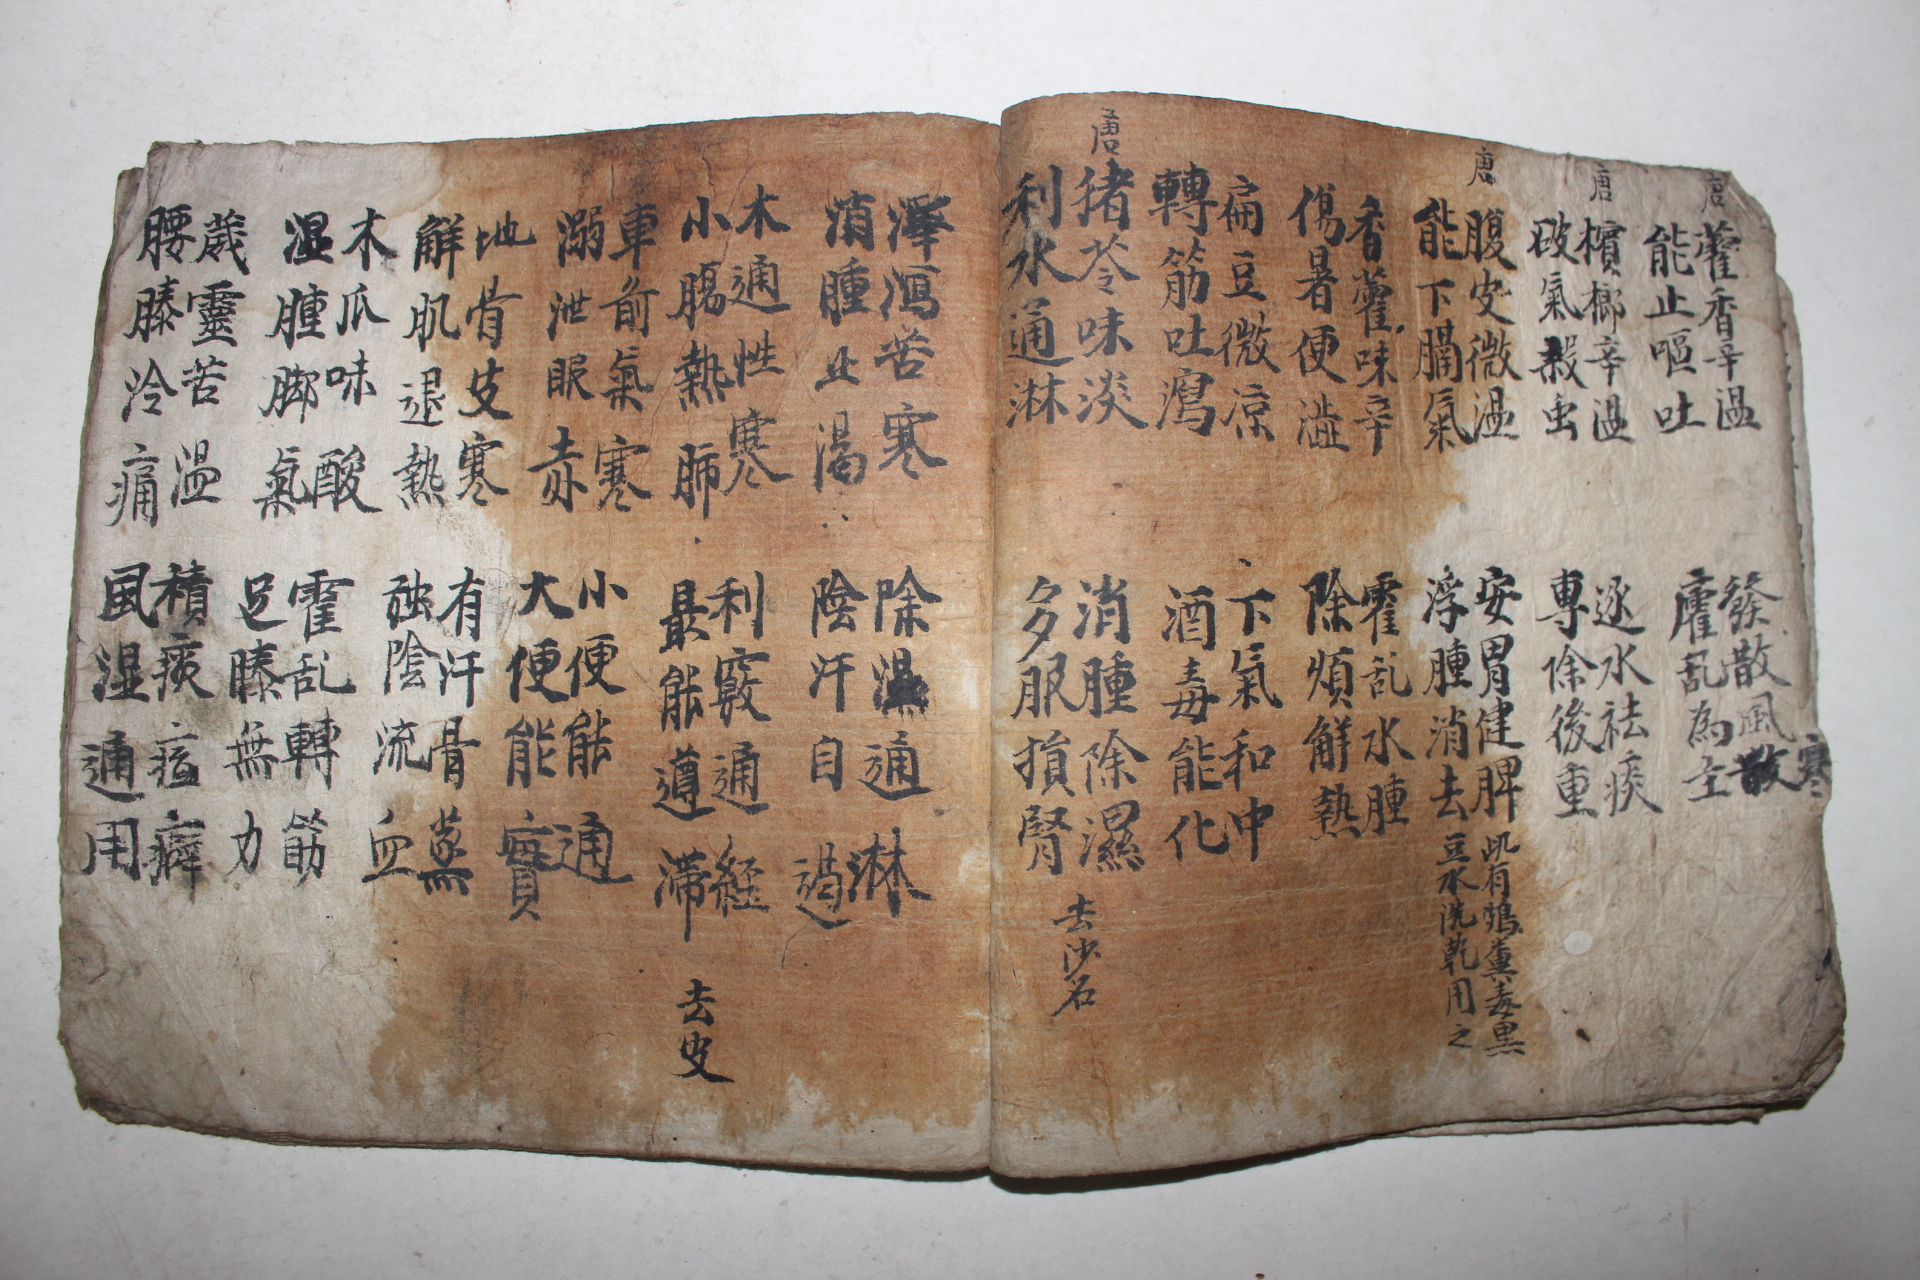 唐
藿香辛温
能止嘔吐
發散風寒
癨乱為主
唐
檳榔辛温
破氣殺虫
逐水祛痰
專除後重
唐
腹皮微温
能下膈氣
安胃健脾
浮腫消去
此有鴆糞毒黒
豆水洗乾用之
香薷味辛
傷暑便澁
霍乱水腫
除煩解熱
扁豆微凉
轉筋吐瀉
下氣和中
酒毒能化
唐
猪苓味淡
利水通淋
消腫除濕
多服損腎
去沙石
澤瀉苦寒
消腫止渴
除濕通淋
陰汗自遏
木通性寒
小腸熱肺
利竅通経
最能導滯
去皮
車前氣寒
溺泄眼赤
小便能通
大便能實
地骨皮寒
解肌退熱
有汗骨蒸
強陰流血
木瓜味酸
湿腫脚氣
霍乱轉筋
足膝無力
葳靈苦温
腰膝冷痛
積痰痃癖
風湿通用